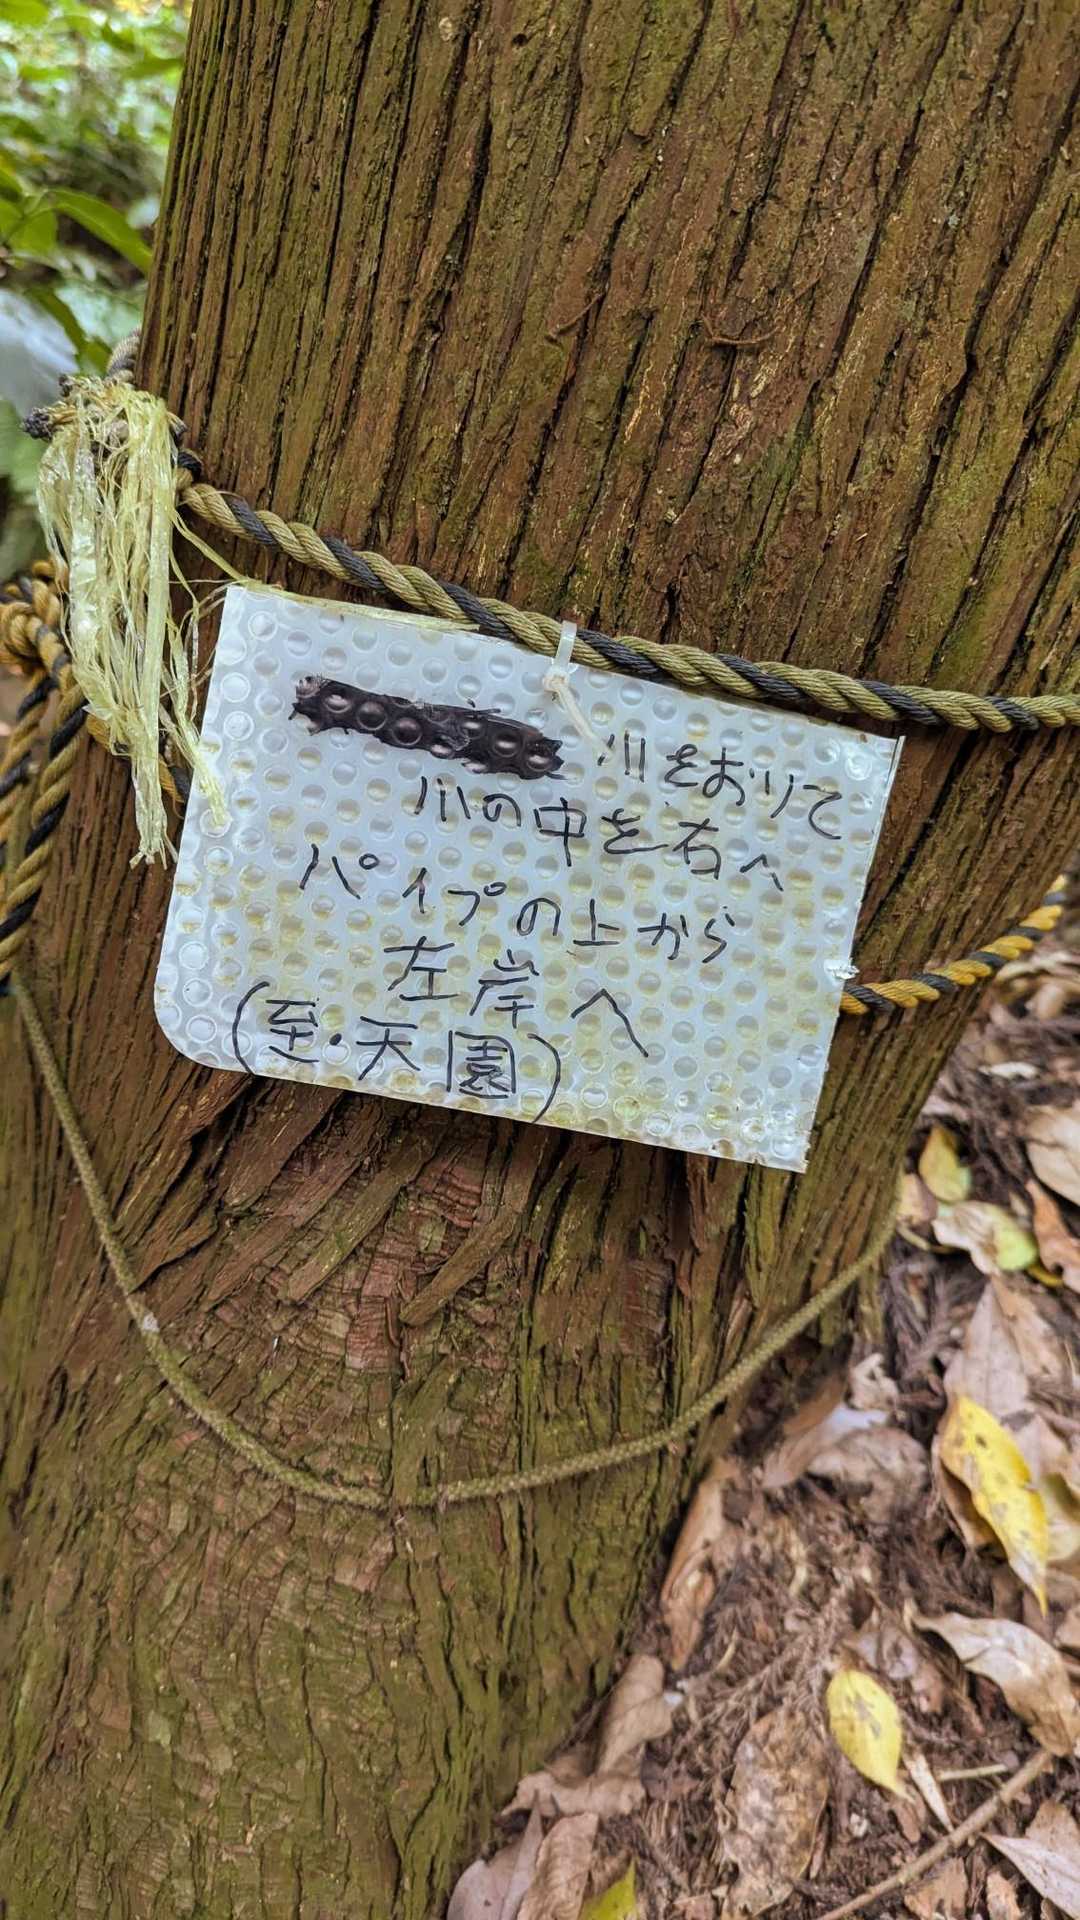 川をおりて
川の中を右へ
パイプの上から
左岸へ
(至・天園)